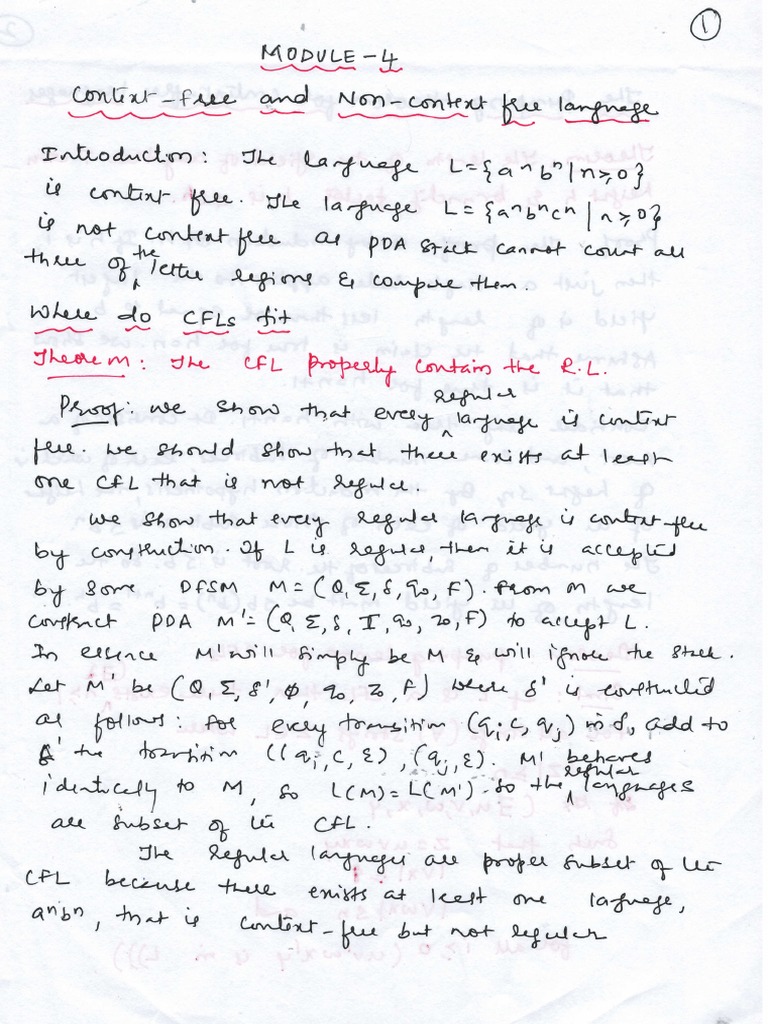 1
MODULE-4
Context-free and Non-context free language
Introduction: The language L={aⁿbⁿ|n≥0}
is context free. The language L={aⁿbⁿcⁿ|n≥0}
is not context free as PDA stack cannot count all
three of the letter regions & compare them.
Where do CFLs fit
Theorem: The CFL properly contain the R.L.
Proof: we show that every regular language is context
free. we should show that there exists at least
one CFL that is not regular.
we show that every regular language is context-free
by construction. If L is regular, then it is accepted
by some DFSM M=(Q,Σ,δ,q₀,F). From M we
construct PDA M'=(Q,Σ,δ,Γ,q₀,z₀,F) to accept L.
In essence M' will simply be M & will ignore the stack.
Let M' be (Q,Σ,δ',ϕ,q₀,z₀,F) where δ' is constructed
as follows: for every transition (qᵢ,c,qⱼ) in δ, add to
δ' the transition ((qᵢ,c,ε),(qⱼ,ε). M' behaves
identically to M, so L(M)=L(M'). so the regular languages
are subset of the CFL.
The regular languages are proper subset of the
CFL because there exists at least one language,
aⁿbⁿ, that is context-free but not regular